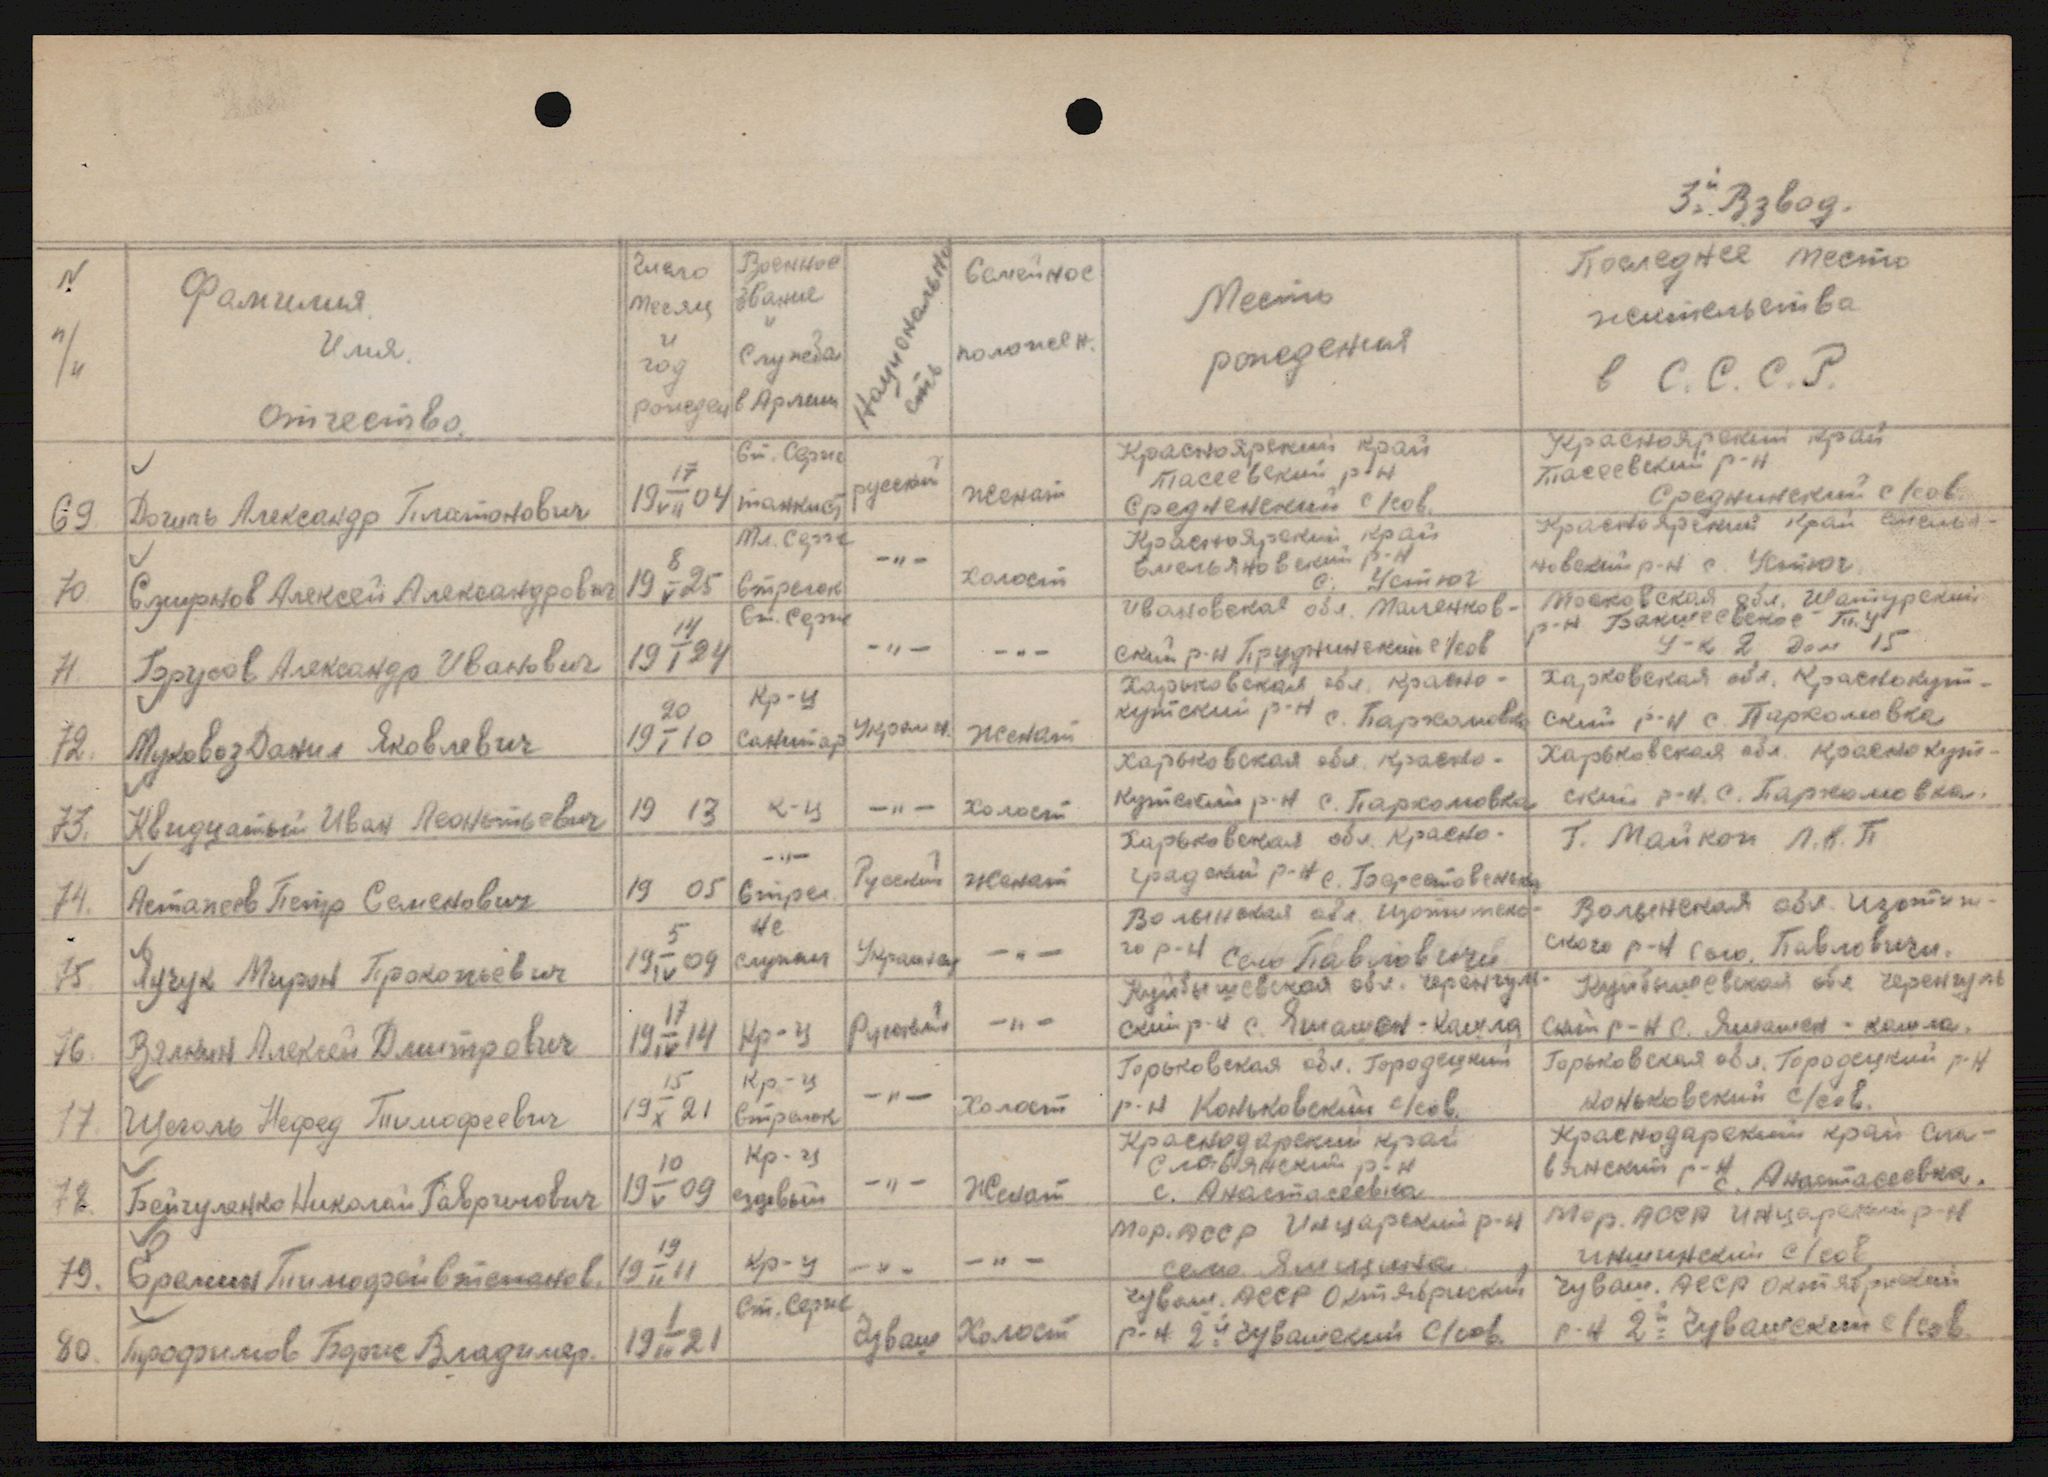 3й Взвод.
N п/п
Фамилия. Имя. Отчество.
Число месяц и год рожден
Военное звание и Служба в Армии
Национальность
Семейное положен.
Место рождения
Последнее место жительства в С.С.С.Р.
69. Догиль Александр Платонович 19 17/VII 04 Ст. Серж танкист русский женат Красноярский край Тасеевский р-н Средненский с/сов. Красноярский край Тасеевский р-н Среднинский с/сов.
70 Смирнов Алексей Александрович 19 8/V 25 Мл. Серж Стрелок -"- Холост Красноярский край Емельяновский р-н с. Устюг Красноярский край Емелья-новский р-н с. Устюг
71. Брусов Александр Иванович 19 14/I 24 Ст. Серж -"- -"- Ивановская обл. Маленков-ский р-н Пруднинский с/сов Московская обл. Шатурский р-н Бакшеевское Т.У У-к 2 дом 15
72. Муковоз Данил Яковлевич 19 20/I 10 Кр-ц санитар Украин. Женат Харьковская обл. Красно-кутский р-н с. Пархомовка Харковская обл. Краснокут-ский р-н с. Пархомовка
73. Квидцатый Иван Леонтьевич 19 13 К-ц -"- Холост Харьковская обл. Красно-кутский р-н с. Пархомовка Харьковская обл. Краснокут-ский р-н. с. Пархомовка.
74. Астапеев Петр Семенович 19 05 -"- Стрел. Русский Женат Харьковская обл. Красно-градский р-н с. Берестовенька Г. Майкоп
75. Яучук Мирон Прокопьевич 19 5/IV 09 Не служил Украинец -"- Волынская обл. го р-н Село Павловичи Волынская обл. ского р-н село. Павловичи.
76. Вялкин Алексей Дмитрович 19 17/IV 14 Кр-ц Русский -"- Куйбышевская обл. ский р-н с. Куйбышевская обл ский р-н с.
77. Щеголь Нефед Тимофеевич 19 15/X 21 Кр.-ц Стрелок -"- Холост Горьковская обл. Городецкий р-н Коньковский с/сов. Горьковская обл. Городецкий р-н коньковский с/сов.
78. Бейгуленко Николай Гаврилович 19 10/V 09 Кр-ц ездовый -"- Женат Краснодарский край Славянский р-н с. Анастасеевка Краснодарский край Сла-вянский р-н с. Анастасеевка.
79. Еремин Тимофей Степанов. 19 19/II 11 Кр-ц -"- -"- Мор. АССР Инцарский р-н село Ямщина Мор. АССР Инцарский р-н иншинский с/сов
80. Трофимов Борис Владимер. 19 1/III 21 Ст. Серж Чуваш Холост Чуваш. АССР Октябрьский р-н 2й Чувашский с/сов. Чуваш. АССР Октябрьский р-н 2й Чувашский с/сов.